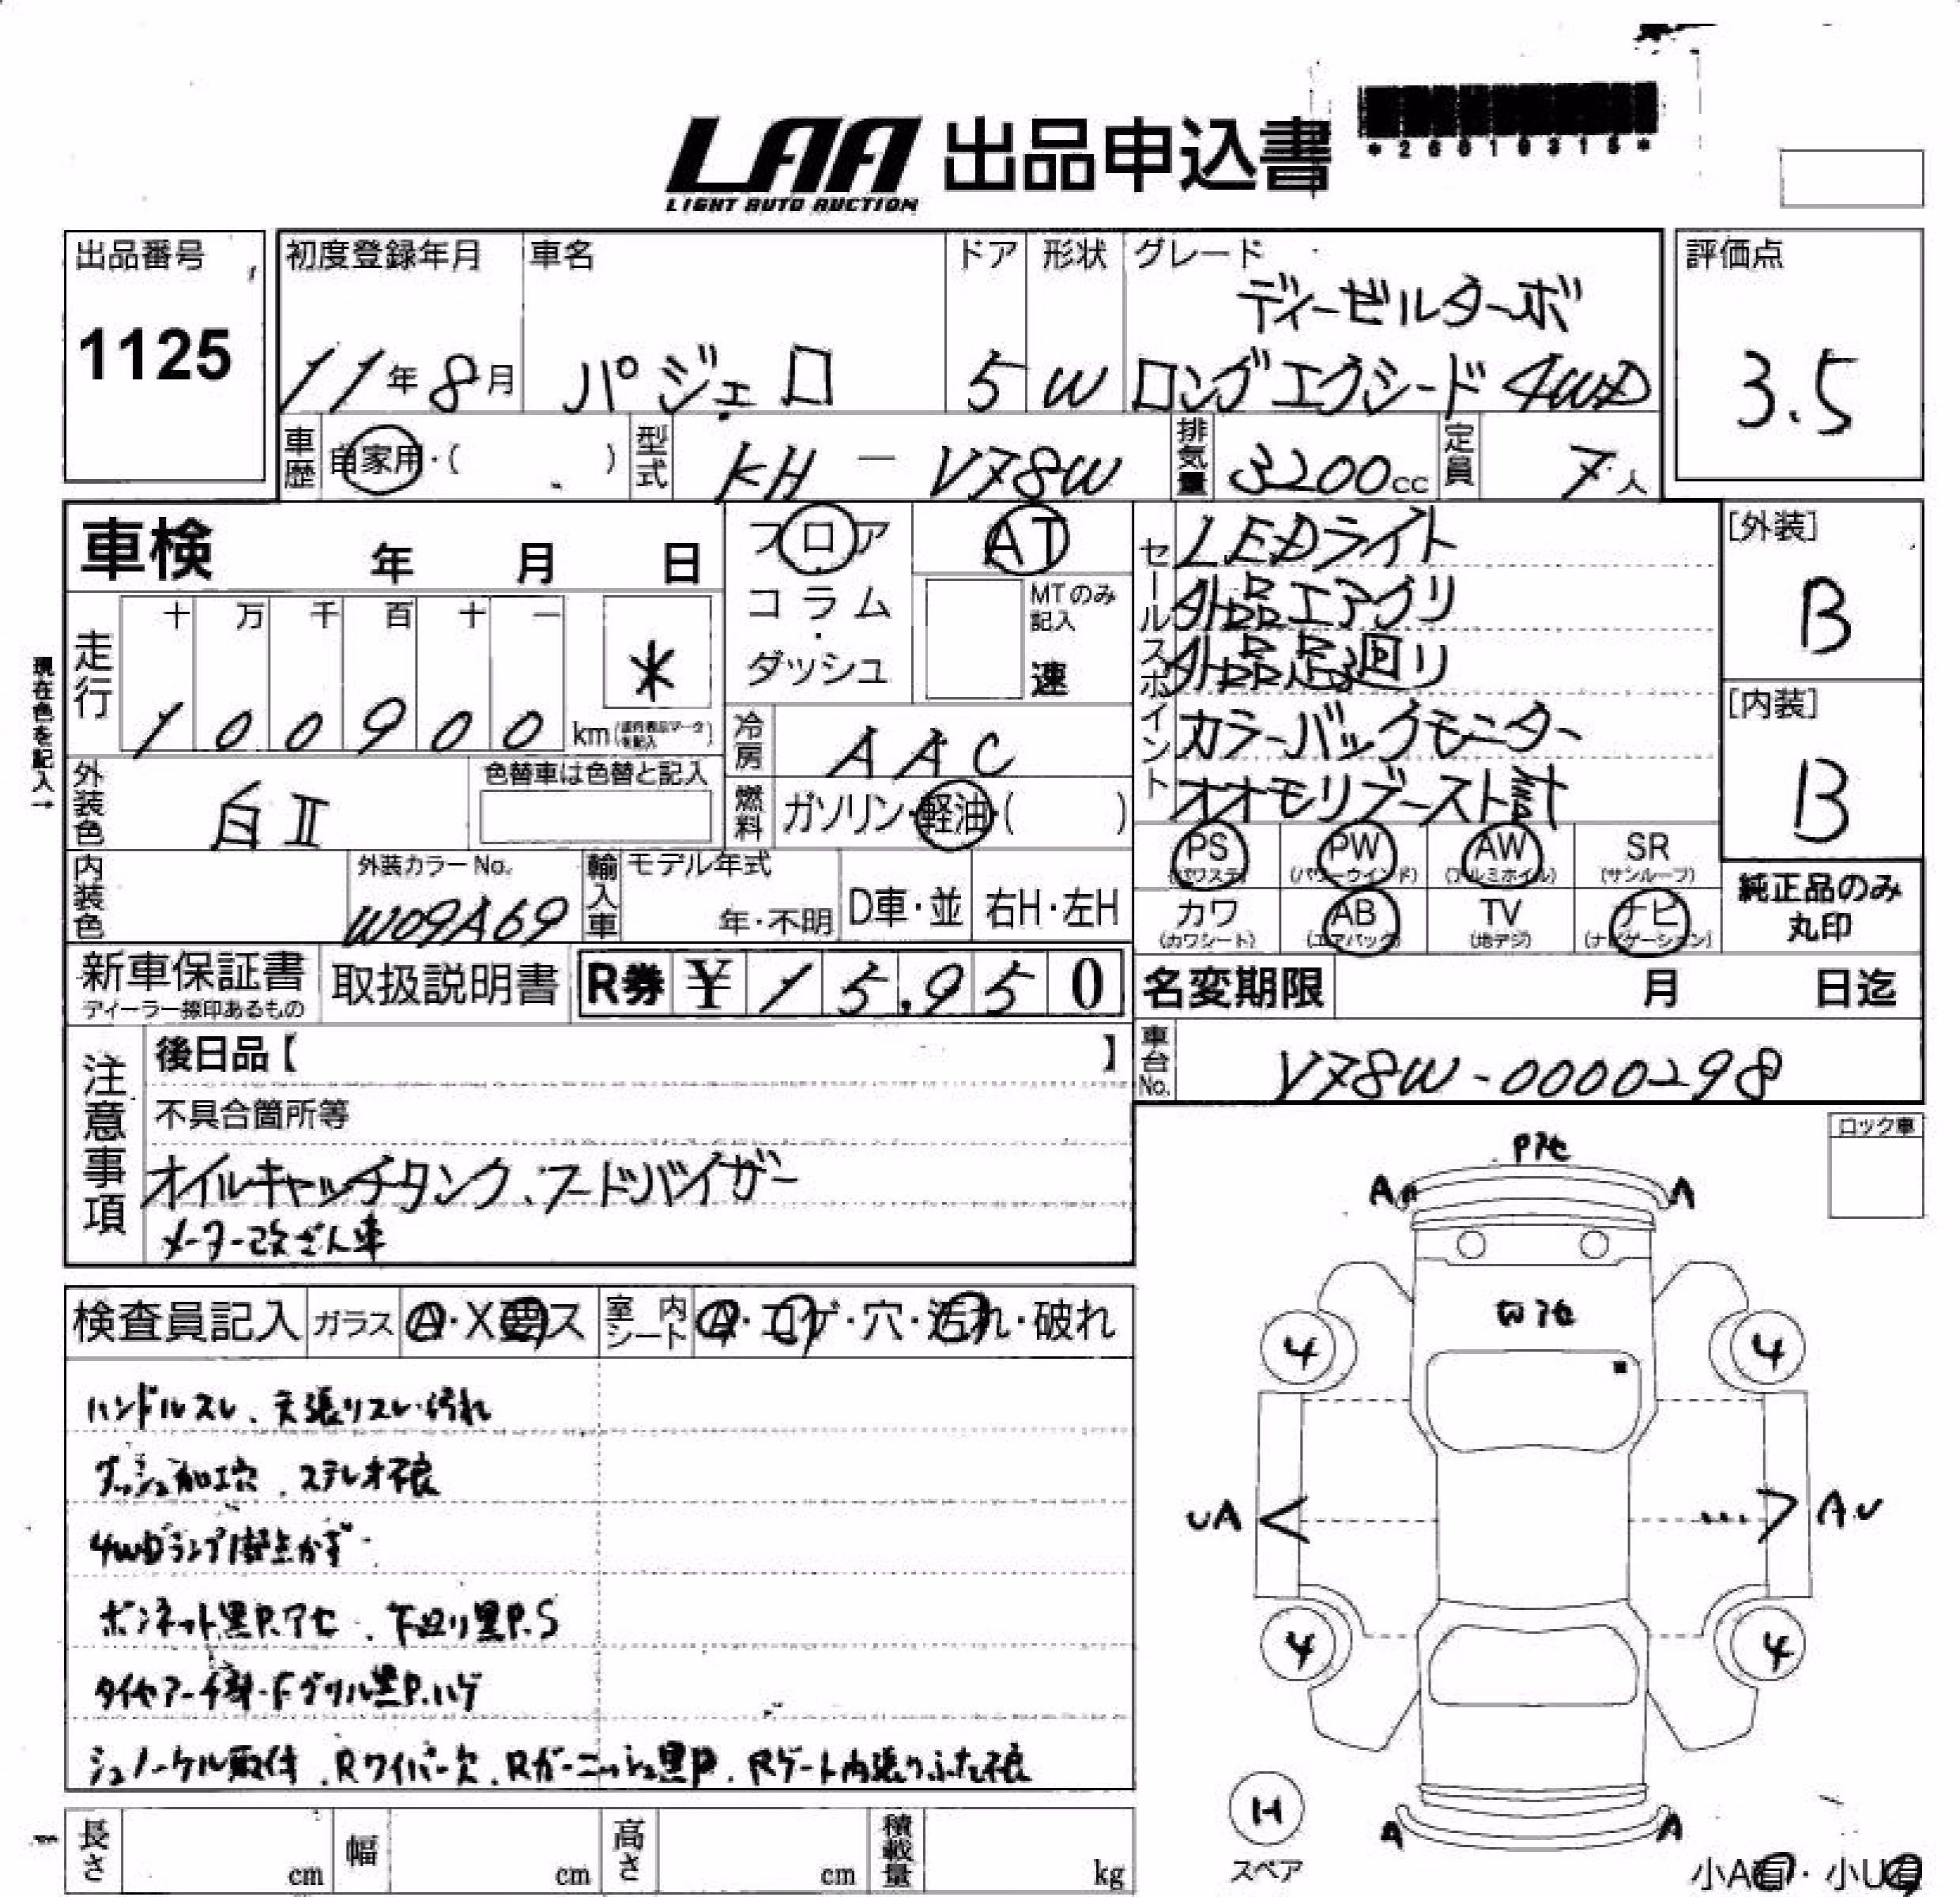 LAA 出品申込書
LIGHT AUTO AUCTION
*26010315*
出品番号
1125
初度登録年月 車名 ドア 形状 グレード
ディーゼルターボ
11年8月 パジェロ 5 W ロングエクシード 4WD
評価点
3.5
車歴 自家用・( ) 型式 KH-V78W 排気量 3200cc 定員 7人
車検 年 月 日
フロア
コラム
・
ダッシュ
AT
MTのみ
記入
速
走行
十 万 千 百 十 一
1 0 0 9 0 0 km
*
現在色を記入→
冷房 AAC
外装色 白II
色替車は色替と記入
燃料 ガソリン・軽油・( )
内装色
外装カラーNo.
W09A69
輸入車 モデル年式
年・不明 D車・並 右H・左H
セールスポイント
LEDライト
外品エアクリ
外品足回り
カラーバックモニター
オオモリブースト計
[外装]
B
[内装]
B
PS PW AW SR
(パワステ) (パワーウインド) (アルミホイル) (サンルーフ)
カワ AB TV ナビ
(カワシート) (エアバック) (地デジ) (ナビゲーション)
純正品のみ
丸印
新車保証書
ディーラー捺印あるもの
取扱説明書
R券 ¥ 15,950
名変期限 月 日迄
車台No. V78W-0000298
注意事項
後日品【 】
不具合箇所等
オイルキャッチタンク、フードバイザー
メーター改ざん車
検査員記入 ガラス A・X・要ス 室内シート A・コゲ・穴・汚れ・破れ
ハンドルスレ、天張りスレ・汚れ
ダッシュ加工穴、ステレオ不良
4WDランプ1部点かず
ボンネット黒P.アセ、下廻り黒P.S
Fグリル黒P.ハゲ
シュノーケル取付、Rワイパー欠、Rガーニッシュ黒P、Rゲート内張りふた不良
長さ cm 幅 cm 高さ cm 積載量 kg
ロック車
Pアセ
A A
4 4
UA AU
4 4
H
スペア
A A
小A有・小U有